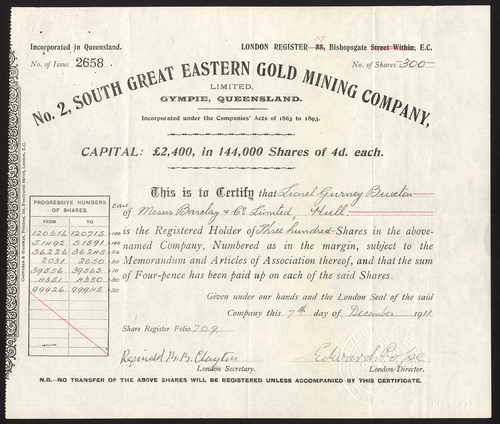 Incorporated in Queensland.
LONDON REGISTER 88, Bishopsgate Street Within, E.C.
No. of Issue 2658
No. of Shares 300
No. 2, SOUTH GREAT EASTERN GOLD MINING COMPANY,
LIMITED.
GYMPIE, QUEENSLAND.
Incorporated under the Companies' Acts of 1863 to 1893.
CAPITAL: £2,400, in 144,000 Shares of 4d. each.
This is to Certify that Lionel Gurney Buxton
care of Messrs Barclay & Co Limited, Hull
is the Registered Holder of Three hundred Shares in the above-
named Company, Numbered as in the margin, subject to the
Memorandum and Articles of Association thereof, and that the sum
of Four-pence has been paid up on each of the said Shares.
Given under our hands and the London Seal of the said
Company this 7th day of December 1911
Share Register Folio 709
PROGRESSIVE NUMBERS
OF SHARES.
FROM TO
120616 120715 100
51492 51591 100
36226 36245 20
2031 2050 20
39556 39565 10
99926 99945 20
Reginald B. B. Clayton
London Secretary.
Edward Pope
London Director.
N.B.—NO TRANSFER OF THE ABOVE SHARES WILL BE REGISTERED UNLESS ACCOMPANIED BY THIS CERTIFICATE.